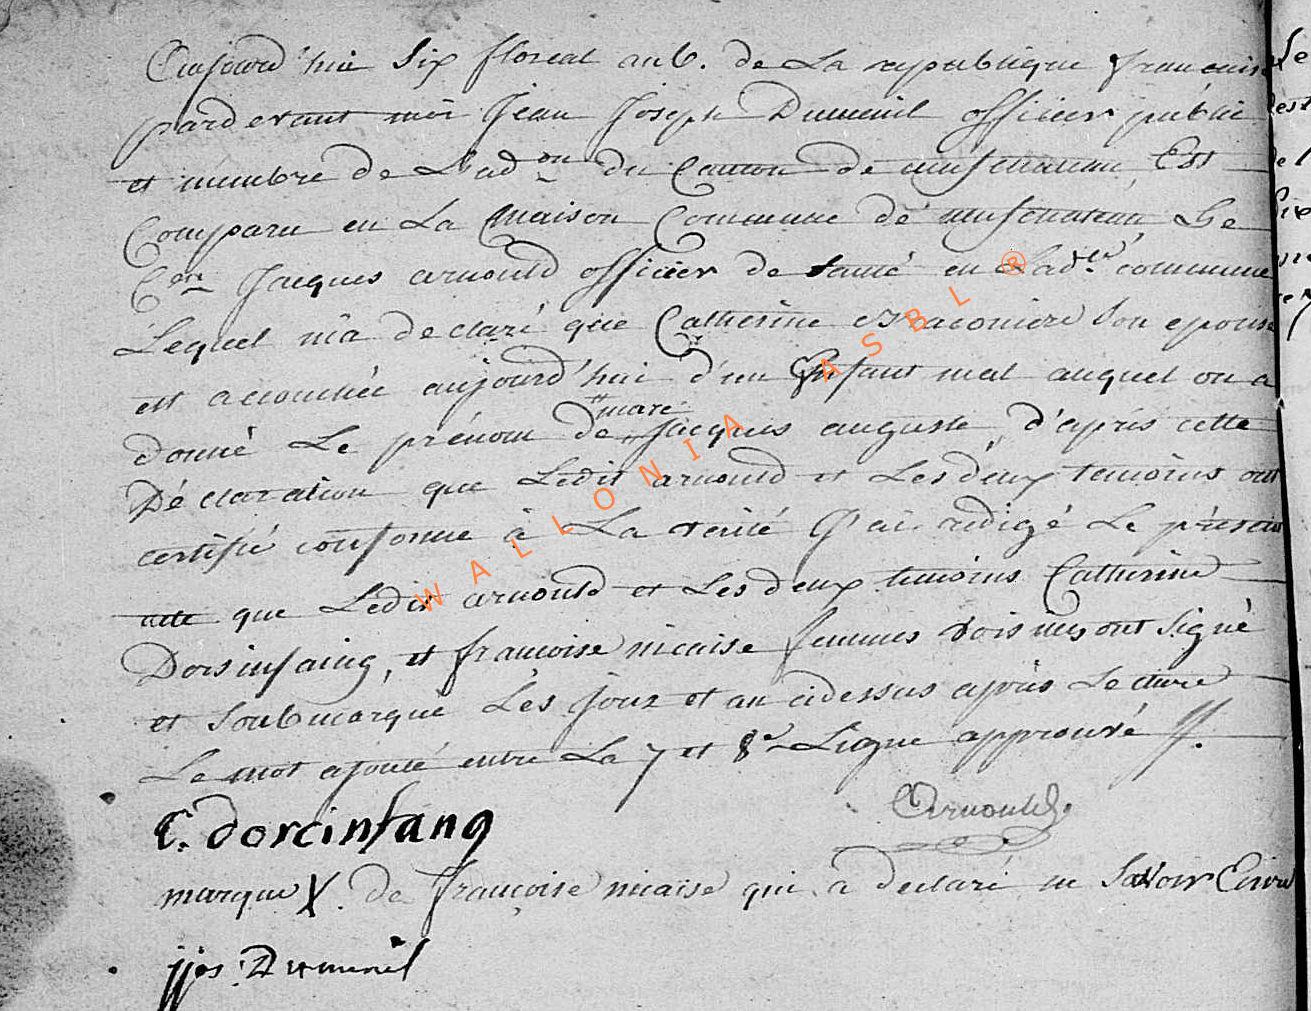 Aujourd'hui Six floreal an 6. de La republique francaise
pardevant moi Jean Joseph Dumenil officier public
et membre de L'ad.on du Canton de neufchateau, Est
Comparu en La Maison Commune de neufchateau Le
C.en Jacques arnould officier de santé en Lad.te commune
Lequel m'a declaré que Catherine Son epouse
est accouchée aujourd'hui d'un Enfant mal auquel on a
marc
donné Le prénom de Jacques auguste, d'après cette
Déclaration que Ledit arnould et Les deux temoins ont
certifié conforme à La verité J'ai redigé Le présent
acte que Ledit arnould et Les deux temoins Catherine
Dorsinfaing, et francoise nicaise femmes voisines ont signé
et Soubmarqué Les jour et an cidessus après Lecture
Le mot ajouté entre La 7 et 8e Ligne approuvé
C. dorcinfang
Arnould
marque X. de françoise nicaise qui a declaré ne Savoir Ecrire
jjos Dumenil
WALLONIA ASBL ®